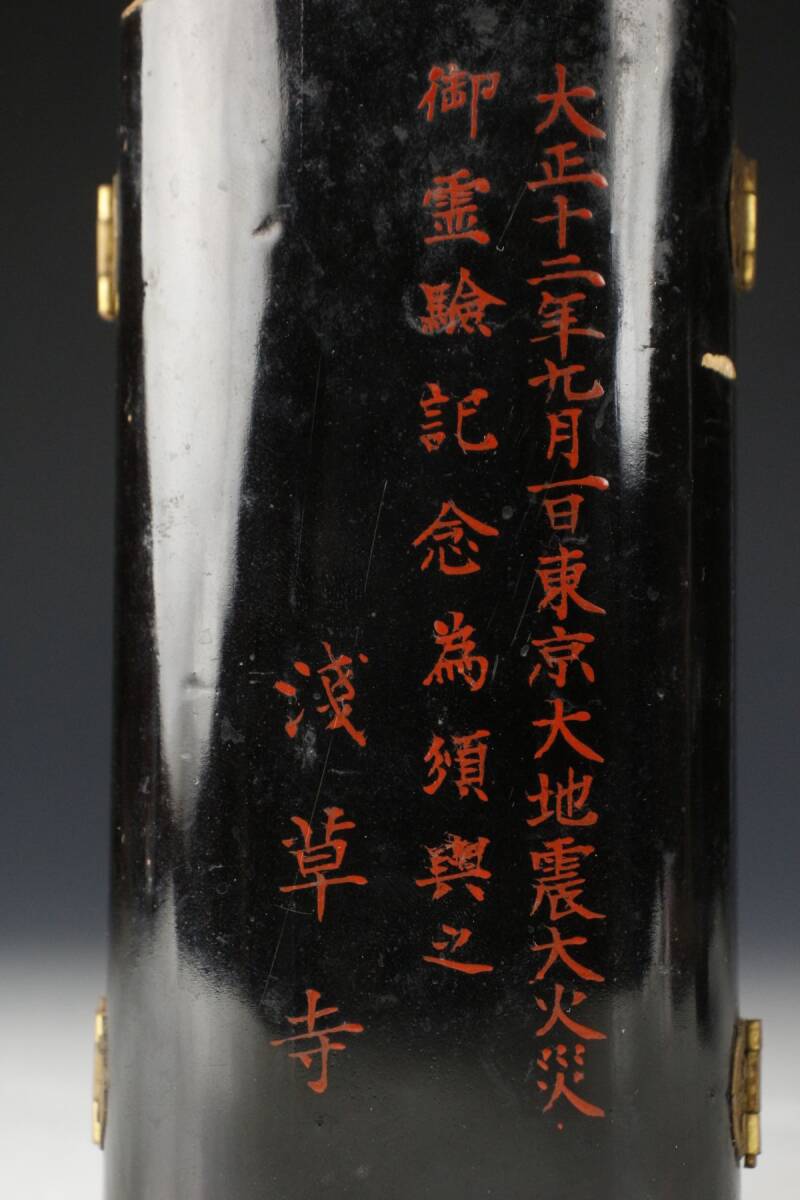 大正十二年九月一日東京大地震大火災
御霊験記念為頒與之
淺草寺